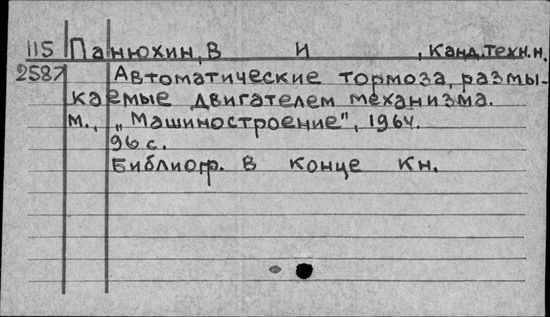 115 Панюхин, В И , Канд. техн. н.
2587 Автоматические тормоза, размы-
каемые двигателем механизма.
М., „Машиностроение", 1964.
96 с.
Библиогр. в конце кн.